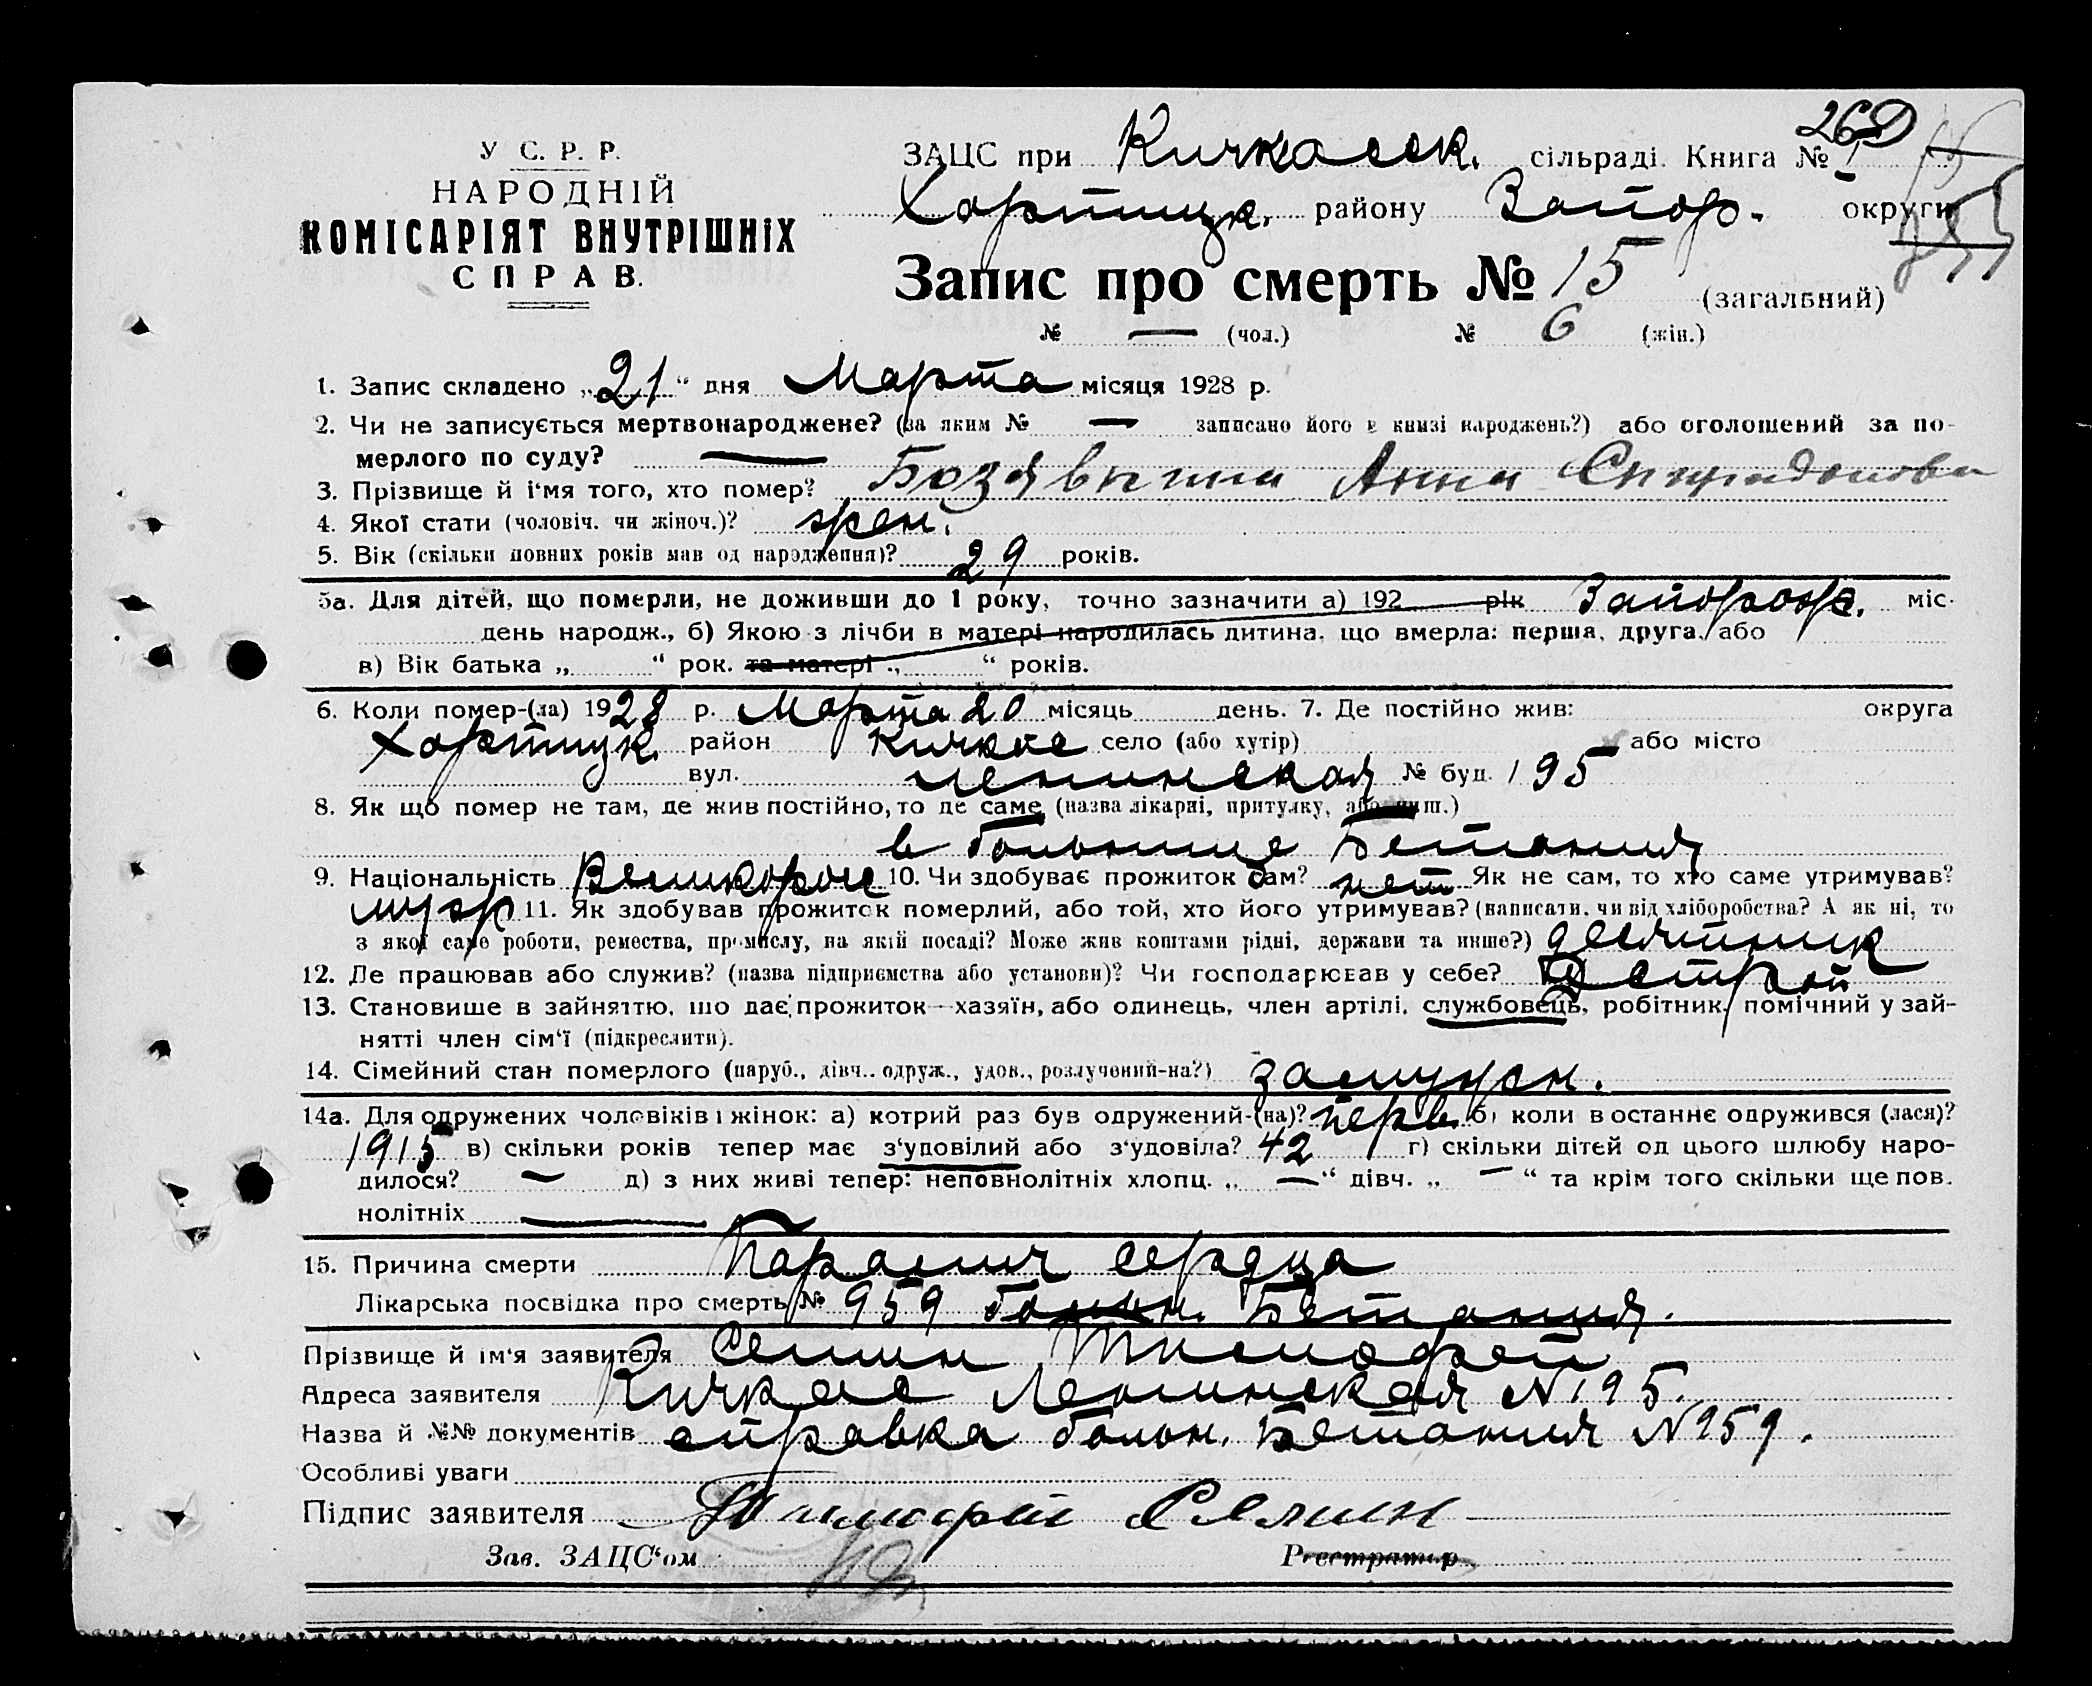 У С. Р. Р.
НАРОДНІЙ
КОМІСАРІЯТ ВНУТРІШНІХ
СПРАВ.
26
ЗАЦС при Кичкасск. сільраді. Книга №
Хортицк. району Запор. округи
Запис про смерть № 15 (загальний)
№ — (чол.) № 6 (жін.)
1. Запис складено „21“ дня Марта місяця 1928 р.
2. Чи не записується мертвонароджене? (за яким № — записано його в книзі народжень?) або оголошений за по-
мерлого по суду? —
3. Прізвище й і'мя того, хто помер? Анна Спиридоновн
4. Якої стати (чоловіч. чи жіноч.)? жен.
5. Вік (скільки повних років мав од народження)? 29 років.
5а. Для дітей, що померли, не доживши до 1 року, точно зазначити а) 192 рік Запорож. міс.
день народж., б) Якою з лічби в матері народилась дитина, що вмерла: перша, друга, або
в) Вік батька „ “ рок. та матері „ “ років.
6. Коли помер-(ла) 1928 р. Марта 20 місяць день. 7. Де постійно жив: округа
Хортицк. район Кичкас село (або хутір) або місто
вул. Ленинская № буд. 195
8. Як що помер не там, де жив постійно, то де саме (назва лікарні, притулку, або инш.)
в больнице Бетания
9. Національність Великорос 10. Чи здобуває прожиток сам? нет Як не сам, то хто саме утримував?
муж 11. Як здобував прожиток померлий, або той, хто його утримував? (написати, чи від хліборобства? А як ні, то
з якої саме роботи, ремества, промислу, на якій посаді? Може жив коштами рідні, держави та инше?) десятник
12. Де працював або служив? (назва підприємства або установи)? Чи господарював у себе? Дстрой
13. Становище в зайняттю, що дає прожиток—хазяїн, або одинець, член артілі, службовець, робітник, помічний у зай-
нятті член сім'ї (підкреслити).
14. Сімейний стан померлого (паруб., дівч., одруж., удов., розлучений-на?) замужн.
14а. Для одружених чоловіків і жінок: а) котрий раз був одружений-(на)? перв. б) коли в останнє одружився (лася)?
1915 в) скільки років тепер має з'удовілий або з'удовіла? 42 г) скільки дітей од цього шлюбу наро-
дилося? — д) з них живі тепер: неповнолітніх хлопц. „—“ дівч. „—“ та крім того скільки ще пов.
нолітніх —
15. Причина смерти Паралич сердца
Лікарська посвідка про смерть № 959 больн. Бетания.
Прізвище й ім'я заявителя Селин Тимофей
Адреса заявителя Кичкас Ленинская N 195.
Назва й №№ документів справка больн. Бетания N 959.
Особливі уваги
Підпис заявителя Тимофей Селин
Зав. ЗАЦС'ом Реєстратор